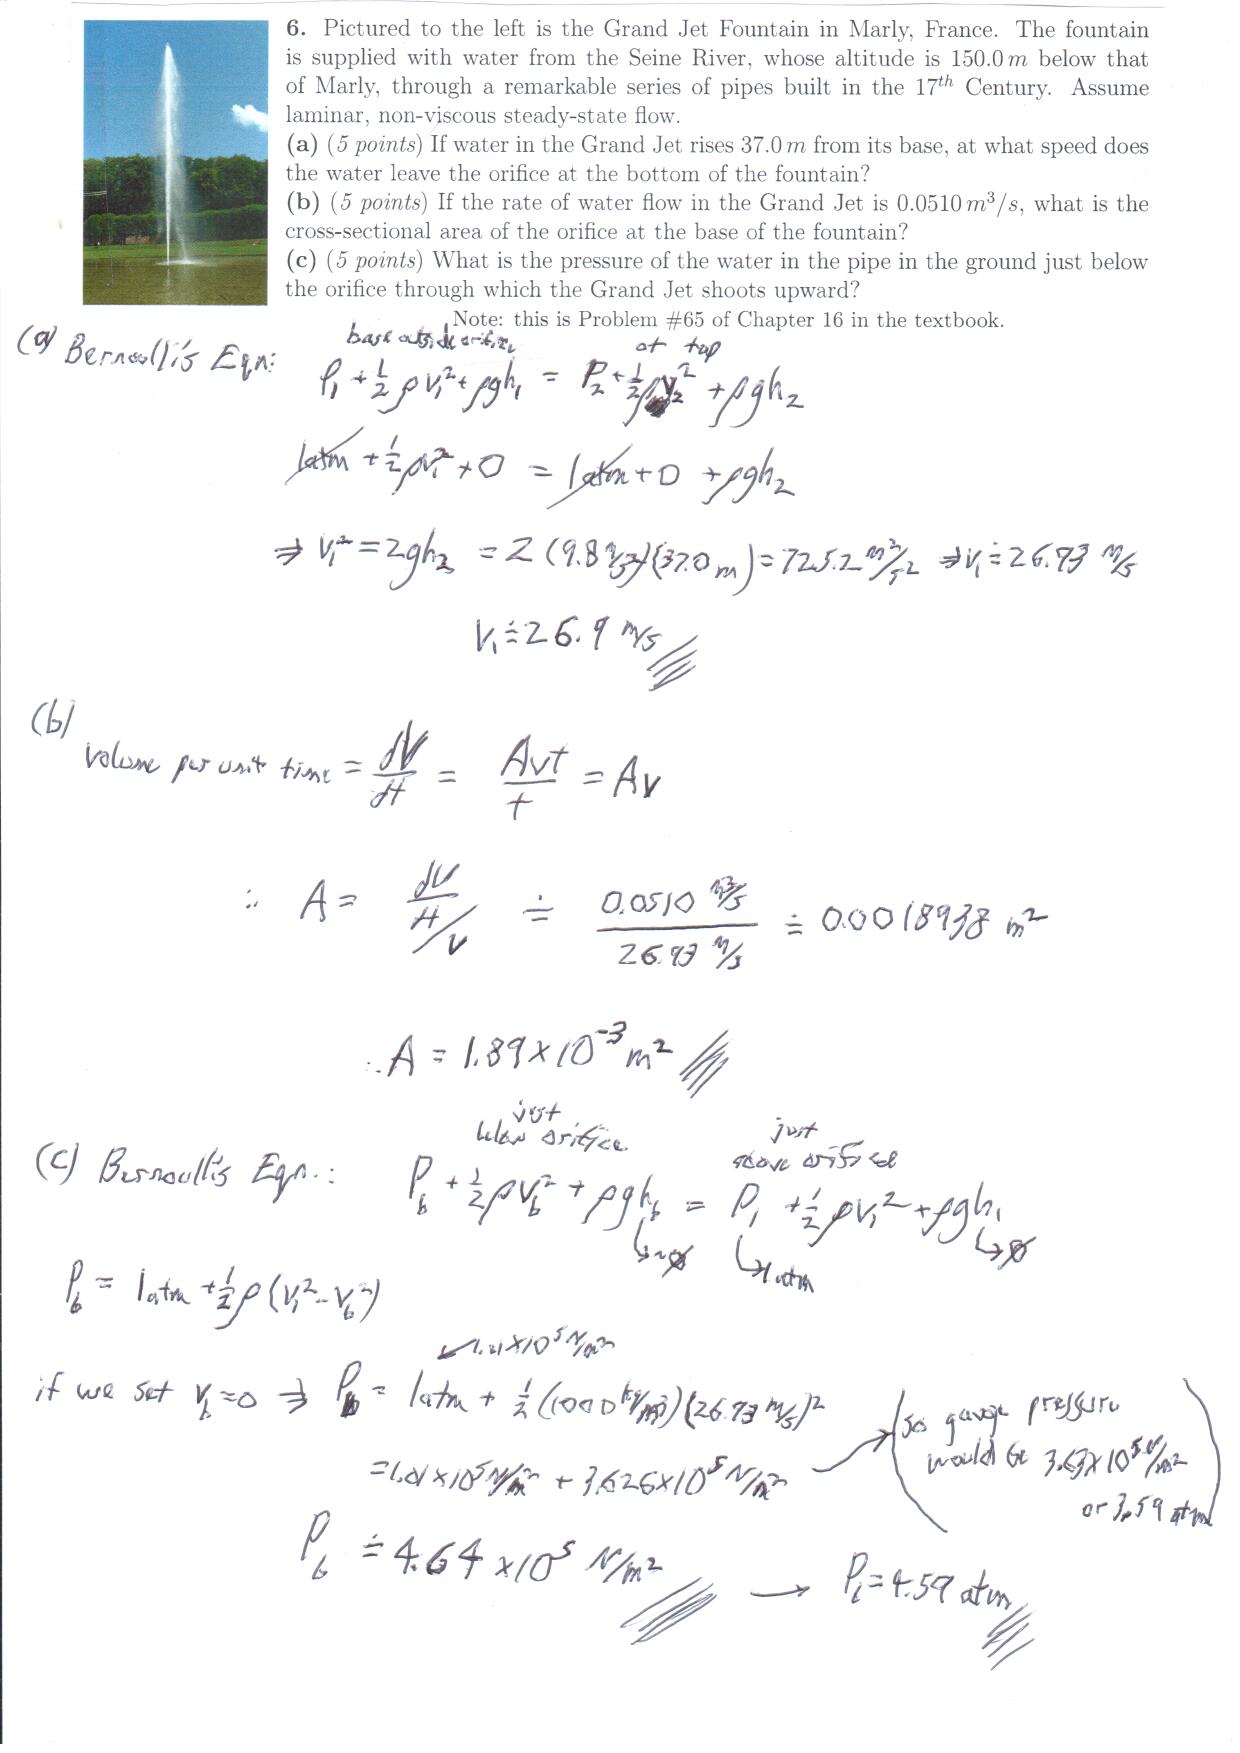 6. Pictured to the left is the Grand Jet Fountain in Marly, France. The fountain
is supplied with water from the Seine River, whose altitude is 150.0 m below that
of Marly, through a remarkable series of pipes built in the 17th Century. Assume
laminar, non-viscous steady-state flow.
(a) (5 points) If water in the Grand Jet rises 37.0 m from its base, at what speed does
the water leave the orifice at the bottom of the fountain?
(b) (5 points) If the rate of water flow in the Grand Jet is 0.0510 m³/s, what is the
cross-sectional area of the orifice at the base of the fountain?
(c) (5 points) What is the pressure of the water in the pipe in the ground just below
the orifice through which the Grand Jet shoots upward?
Note: this is Problem #65 of Chapter 16 in the textbook.
base outside orifice at top
(a) Bernoulli's Eqn: P₁ + ½ρv₁² + ρgh₁ = P₂ + ½ρv₂² + ρgh₂
1atm + ½ρv₁² + 0 = 1atm + 0 + ρgh₂
⇒ v₁² = 2gh₂ = 2 (9.8 m/s²)(37.0 m) = 725.2 m²/s² ⇒ v₁ ≐ 26.93 m/s
v₁ ≐ 26.9 m/s
(b)
volume per unit time = dV/dt = Avt/t = Av
∴ A = dV/dt / v ≐ 0.0510 m³/s / 26.93 m/s ≐ 0.0018938 m²
∴ A = 1.89 × 10⁻³ m²
just below orifice just above orifice
(c) Bernoulli's Eqn.: P_b + ½ρv_b² + ρgh_b = P₁ + ½ρv₁² + ρgh₁
↳ ~0 ↳ 1atm ↳ 0
P_b = 1atm + ½ρ(v₁² - v_b²)
1.01×10⁵ N/m²
if we set v_b ≈ 0 ⇒ P_b = 1atm + ½(1000 kg/m³)(26.93 m/s)²
= 1.01×10⁵ N/m² + 3.626×10⁵ N/m²
(so gauge pressure
would be 3.63×10⁵ N/m²
or 3.59 atm)
P_b ≐ 4.64 ×10⁵ N/m² → P_b = 4.59 atm